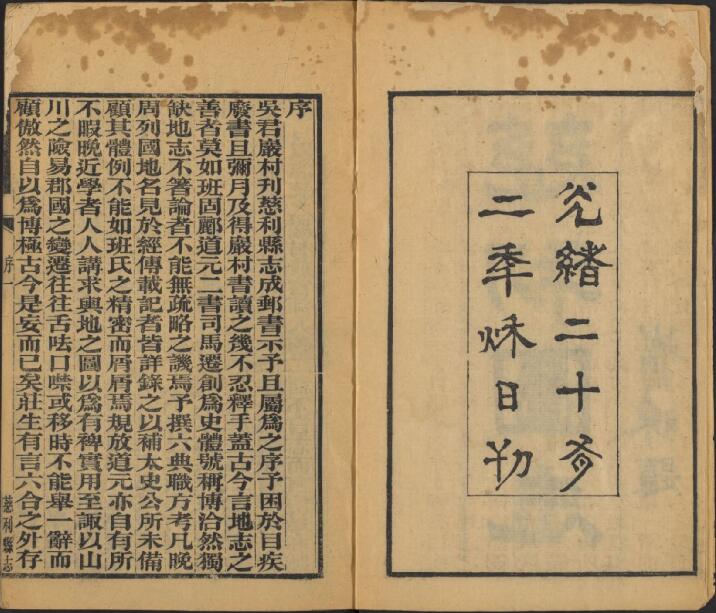 光緒二十有
二秊秌日刊
序
吳君嚴村刊慈利縣志成郵書示予且屬爲之序予困於目疾
廢書且彌月及得嚴村書讀之幾不忍釋手蓋古今言地志之
善者莫如班固酈道元二書司馬遷創爲史體號稱博洽然獨
缺地志不箸論者不能無疏略之譏焉予撰六典職方考凡晚
周列國地名見於經傳載記者皆詳錄之以補太史公所未備
顧其體例不能如班氏之精密而屑屑焉規放道元亦自有所
不暇晚近學者人人講求輿地之圖以爲有裨實用至諏以山
川之險易郡國之變遷往往舌呿口噤或移時不能舉一辭而
顧傲然自以爲博極古今是妄而已矣莊生有言六合之外存
序一
慈利縣志